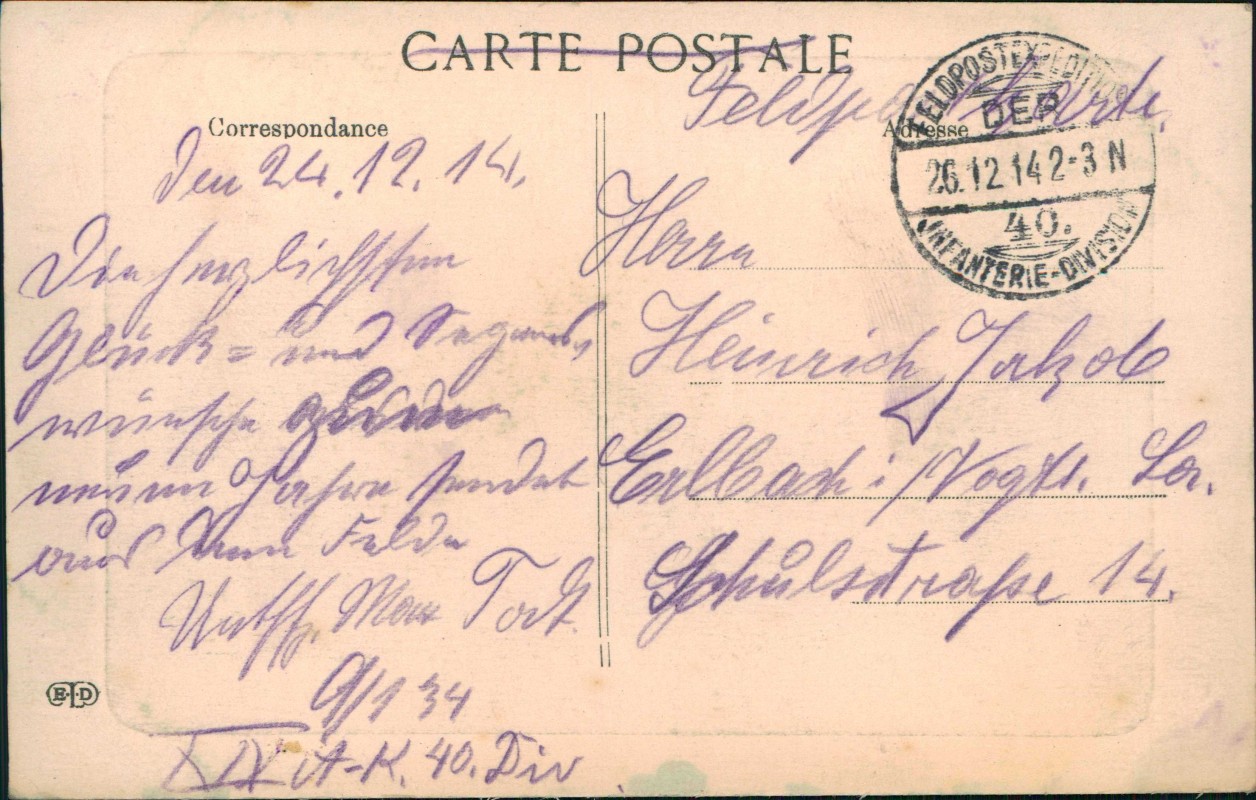 CARTE POSTALE
Feldpostkarte.
Correspondance
Adresse
FELDPOSTEXPEDITION
DER
26.12 14 2-3 N
40.
INFANTERIE-DIVISION
Den 24.12.14.
Die herzlichsten
Glück= und Segens,
wünsche zum
neuen Jahre sendet
aus dem Felde
Untffz. Max Todt.
9/134
XIX A-K. 40. Div
Herrn
Heinrich Jakob
Erlbach i/Vogtl. Sa.
Schulstraße 14.
E.L.D